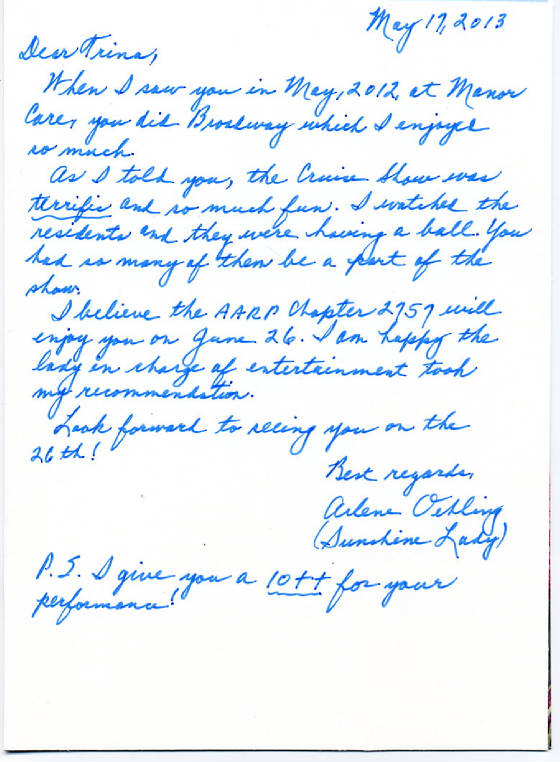 May 17, 2013
Dear Trina,
When I saw you in May, 2012, at Manor
Care, you did Broadway which I enjoyed
so much.
As I told you, the Cruise Show was
terrific and so much fun. I watched the
residents and they were having a ball. You
had so many of them be a part of the
show.
I believe the AARP Chapter 2757 will
enjoy you on June 26. I am happy the
lady in charge of entertainment took
my recommendation.
Look forward to seeing you on the
26th!
Best regards,
Arlene Oehling
(Sunshine Lady)
P.S. I give you a 10++ for your
performance!